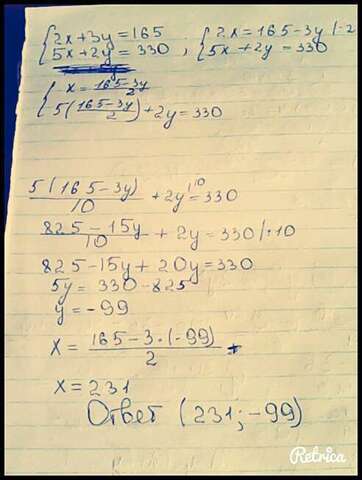 {2x+3y=165
5x+2y=330 ; {2x=165-3y |:2
5x+2y=330
{x=165-3y/2
5(165-3y/2)+2y=330
5(165-3y)/10 + 2y|10=330
825-15y/10 + 2y=330/:10
825-15y+20y=330
5y=330-825
y=-99
x=165-3·(-99)/2
x=231
Ответ (231;-99)
Retrica